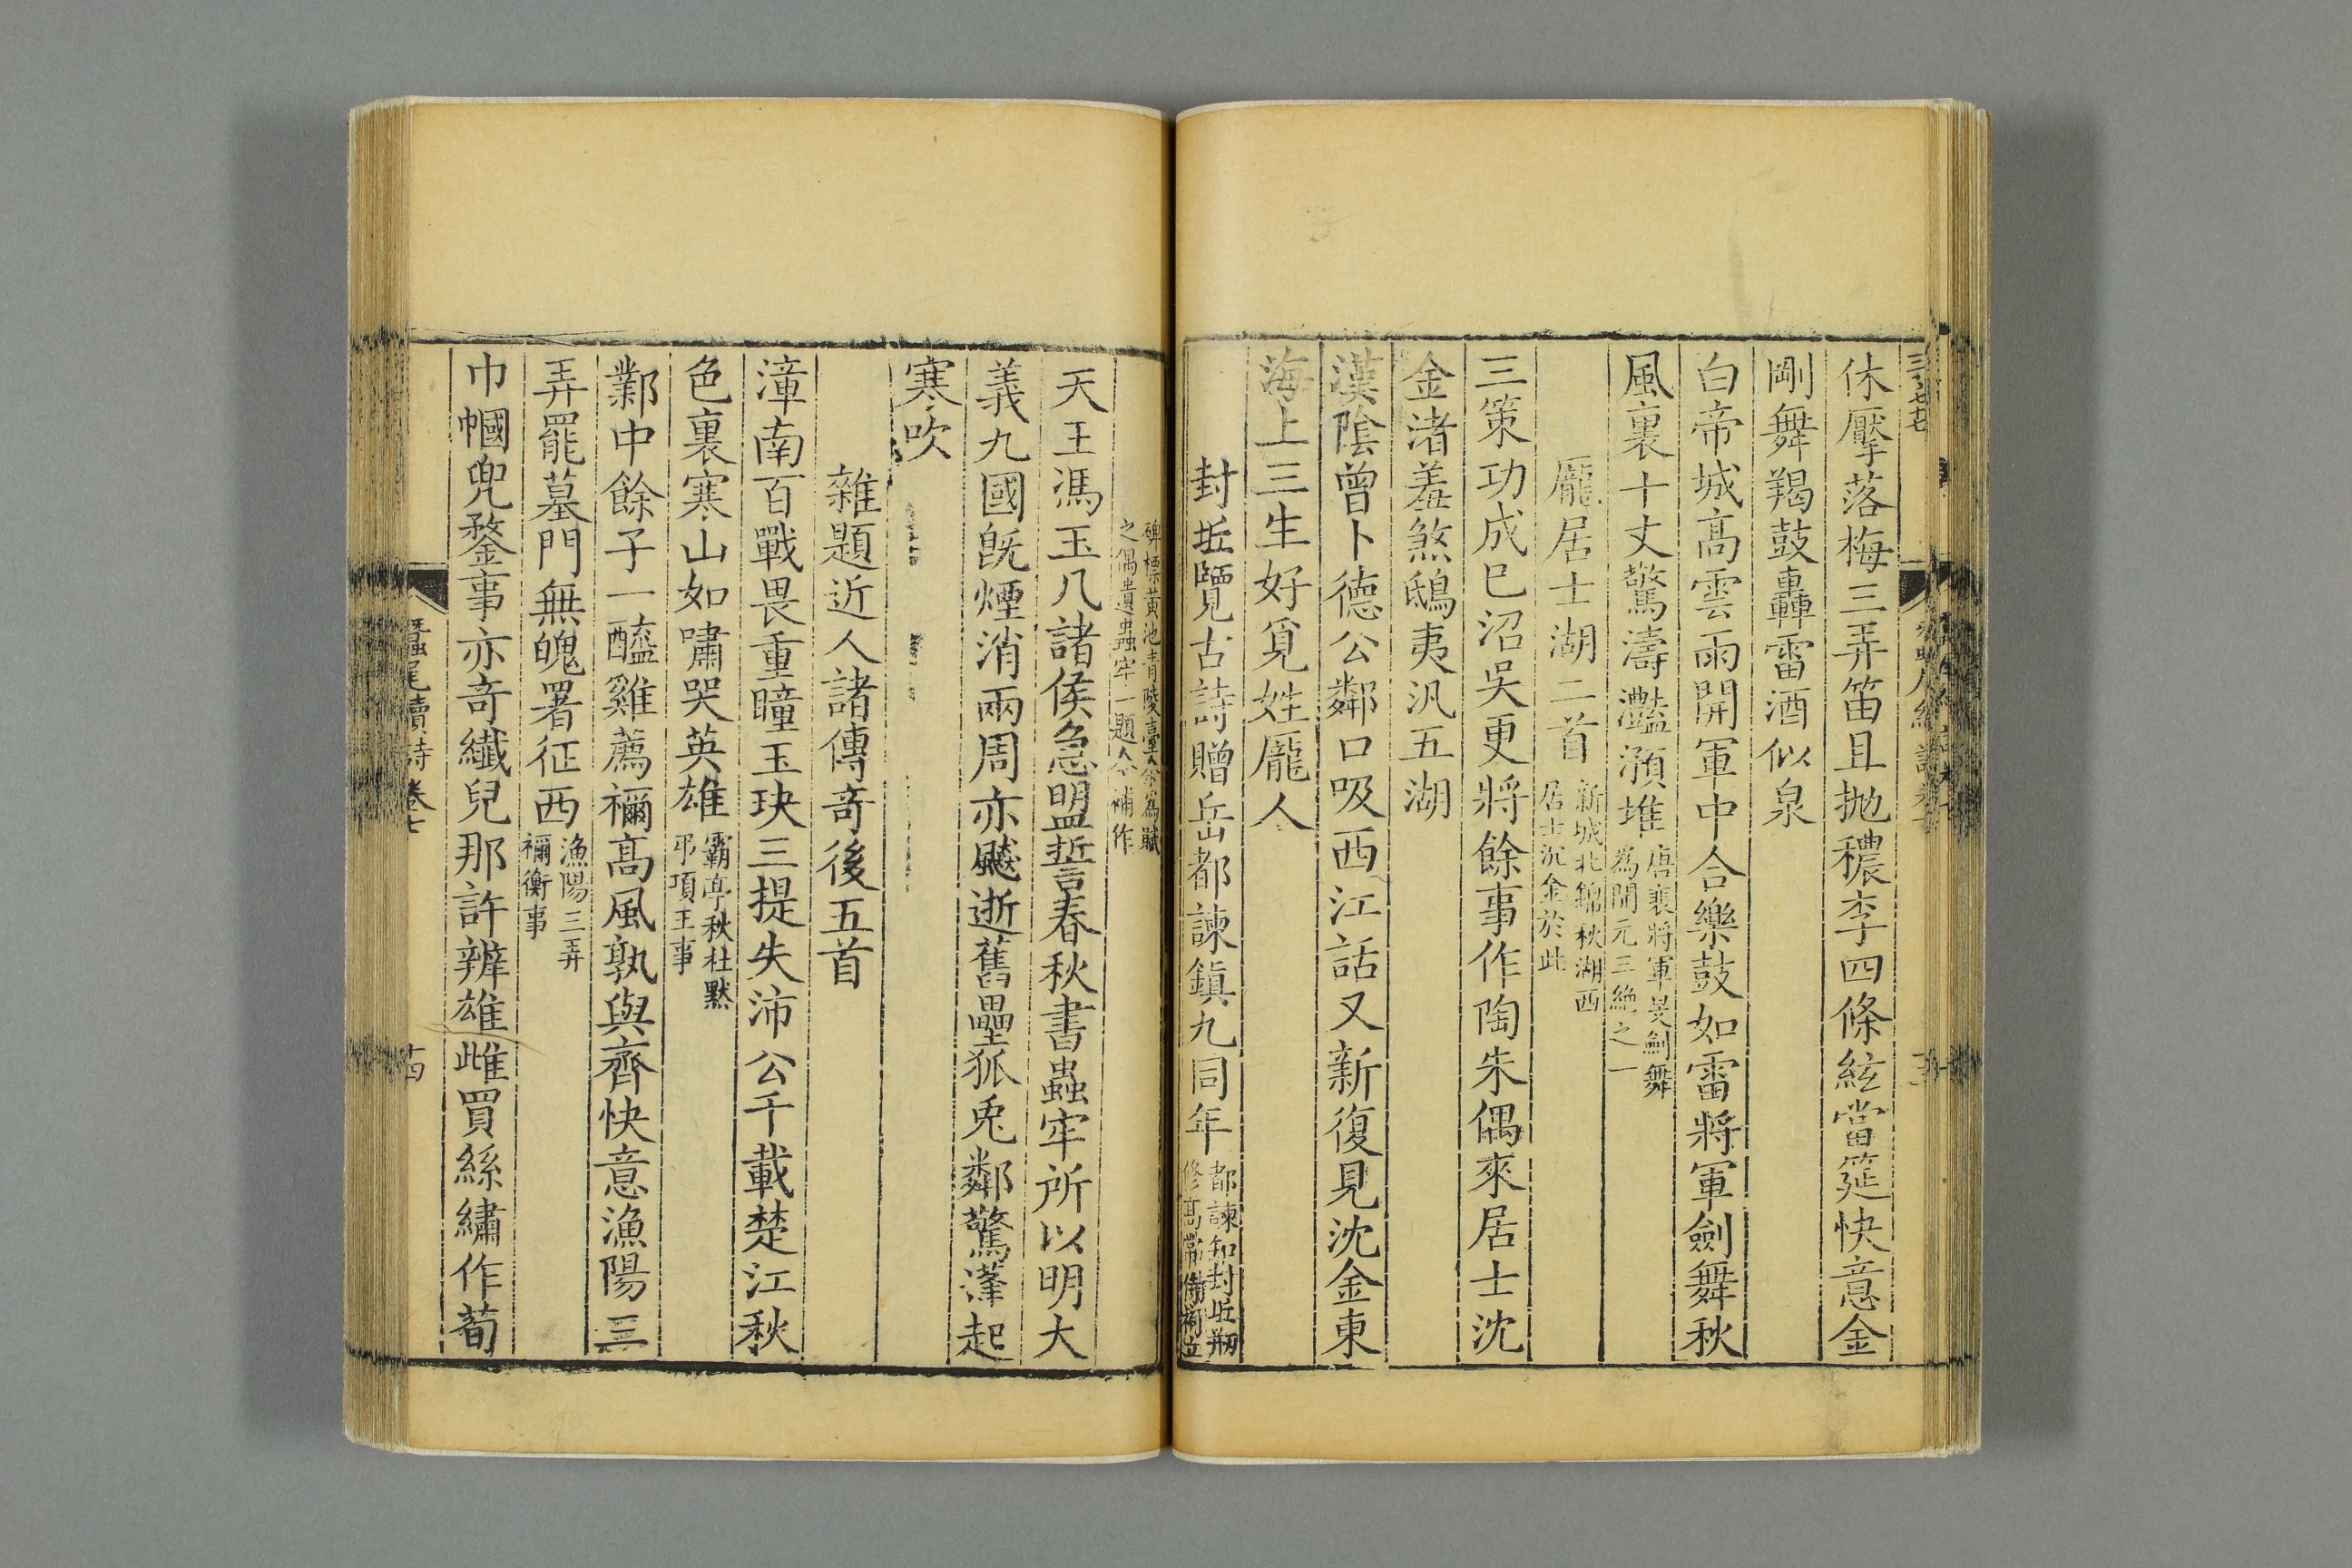 休擪落梅三弄笛且抛穠李四條絃當筵快意金
剛舞羯鼓轟雷酒似泉
白帝城高雲雨開軍中合樂鼓如雷將軍劍舞秋
風裏十丈驚濤灩澦堆唐裴將軍旻劍舞
為開元三絶之一
龎居士湖二首新城北錦秋湖西
居士沉金於此
三策功成巳沼吳更將餘事作陶朱偶來居士沈
金渚羞煞鴟夷汎五湖
漢陰曾卜德公鄰口吸西江話又新復見沈金東
海上三生好覓姓龎人
封丘覽古詩贈岳都諫鎮九同年都諫知封丘剏
修高常侍祠立
碑標黄池青陵臺余為賦
之偶遺蟲牢一題今補作
天王馮玉几諸侯急盟誓春秋書蟲牢所以明大
義九國旣煙消兩周亦飈逝舊壘狐兎鄰驚蓬起
寒吹
雜題近人諸傳奇後五首
漳南百戰畏重瞳玉玦三提失沛公千載楚江秋
色裏寒山如嘯哭英雄霸亭秋杜黙
弔項王事
鄴中餘子一醯雞薦禰高風孰與齊快意漁陽三
弄罷墓門無媿署征西漁陽三弄
禰衡事
巾幗兜鍪事亦竒纖兒那許辨雄雌買絲繡作荀
蠶尾續詩卷七
十四